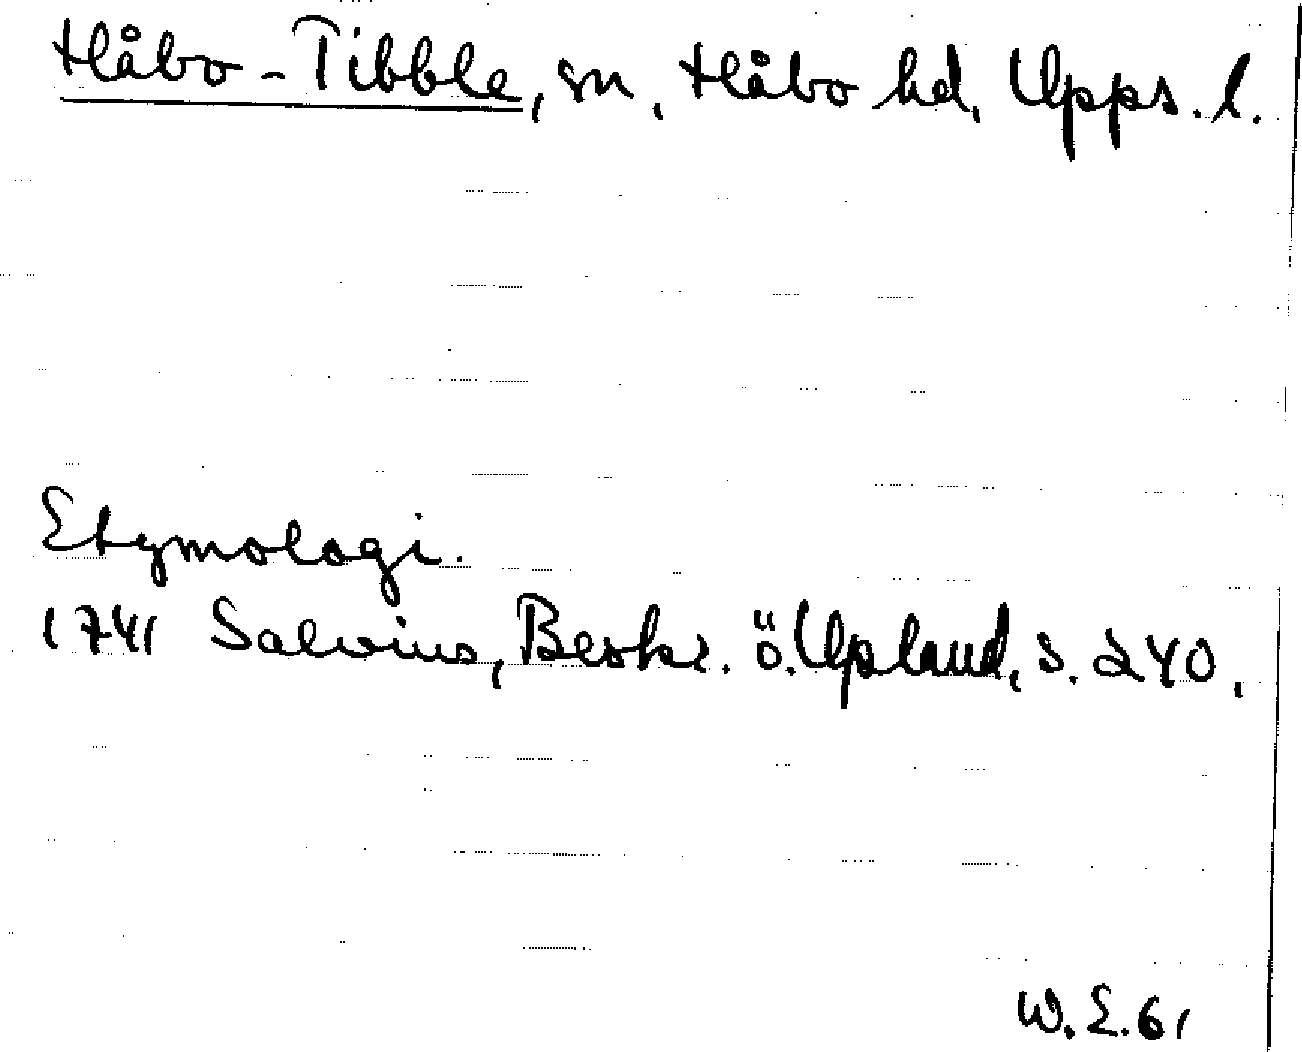 Håbo-Tibble, sn, Håbo hd, Upps. l.
Etymologi.
1741 Salvius, Beskr. ö. Upland, s. 240.
W. E. 61